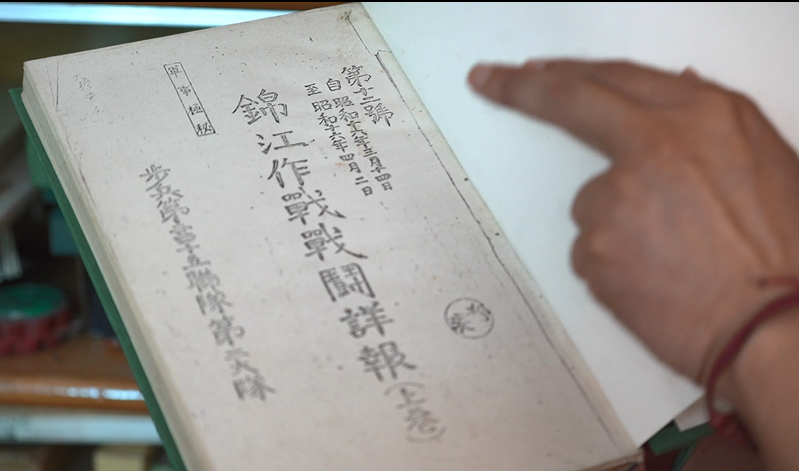 第十二號
自昭和十六年三月十四日
至昭和十六年四月二日
錦江作戰戰鬪詳報(上卷)
軍事極秘
步兵第十五聯隊第大隊